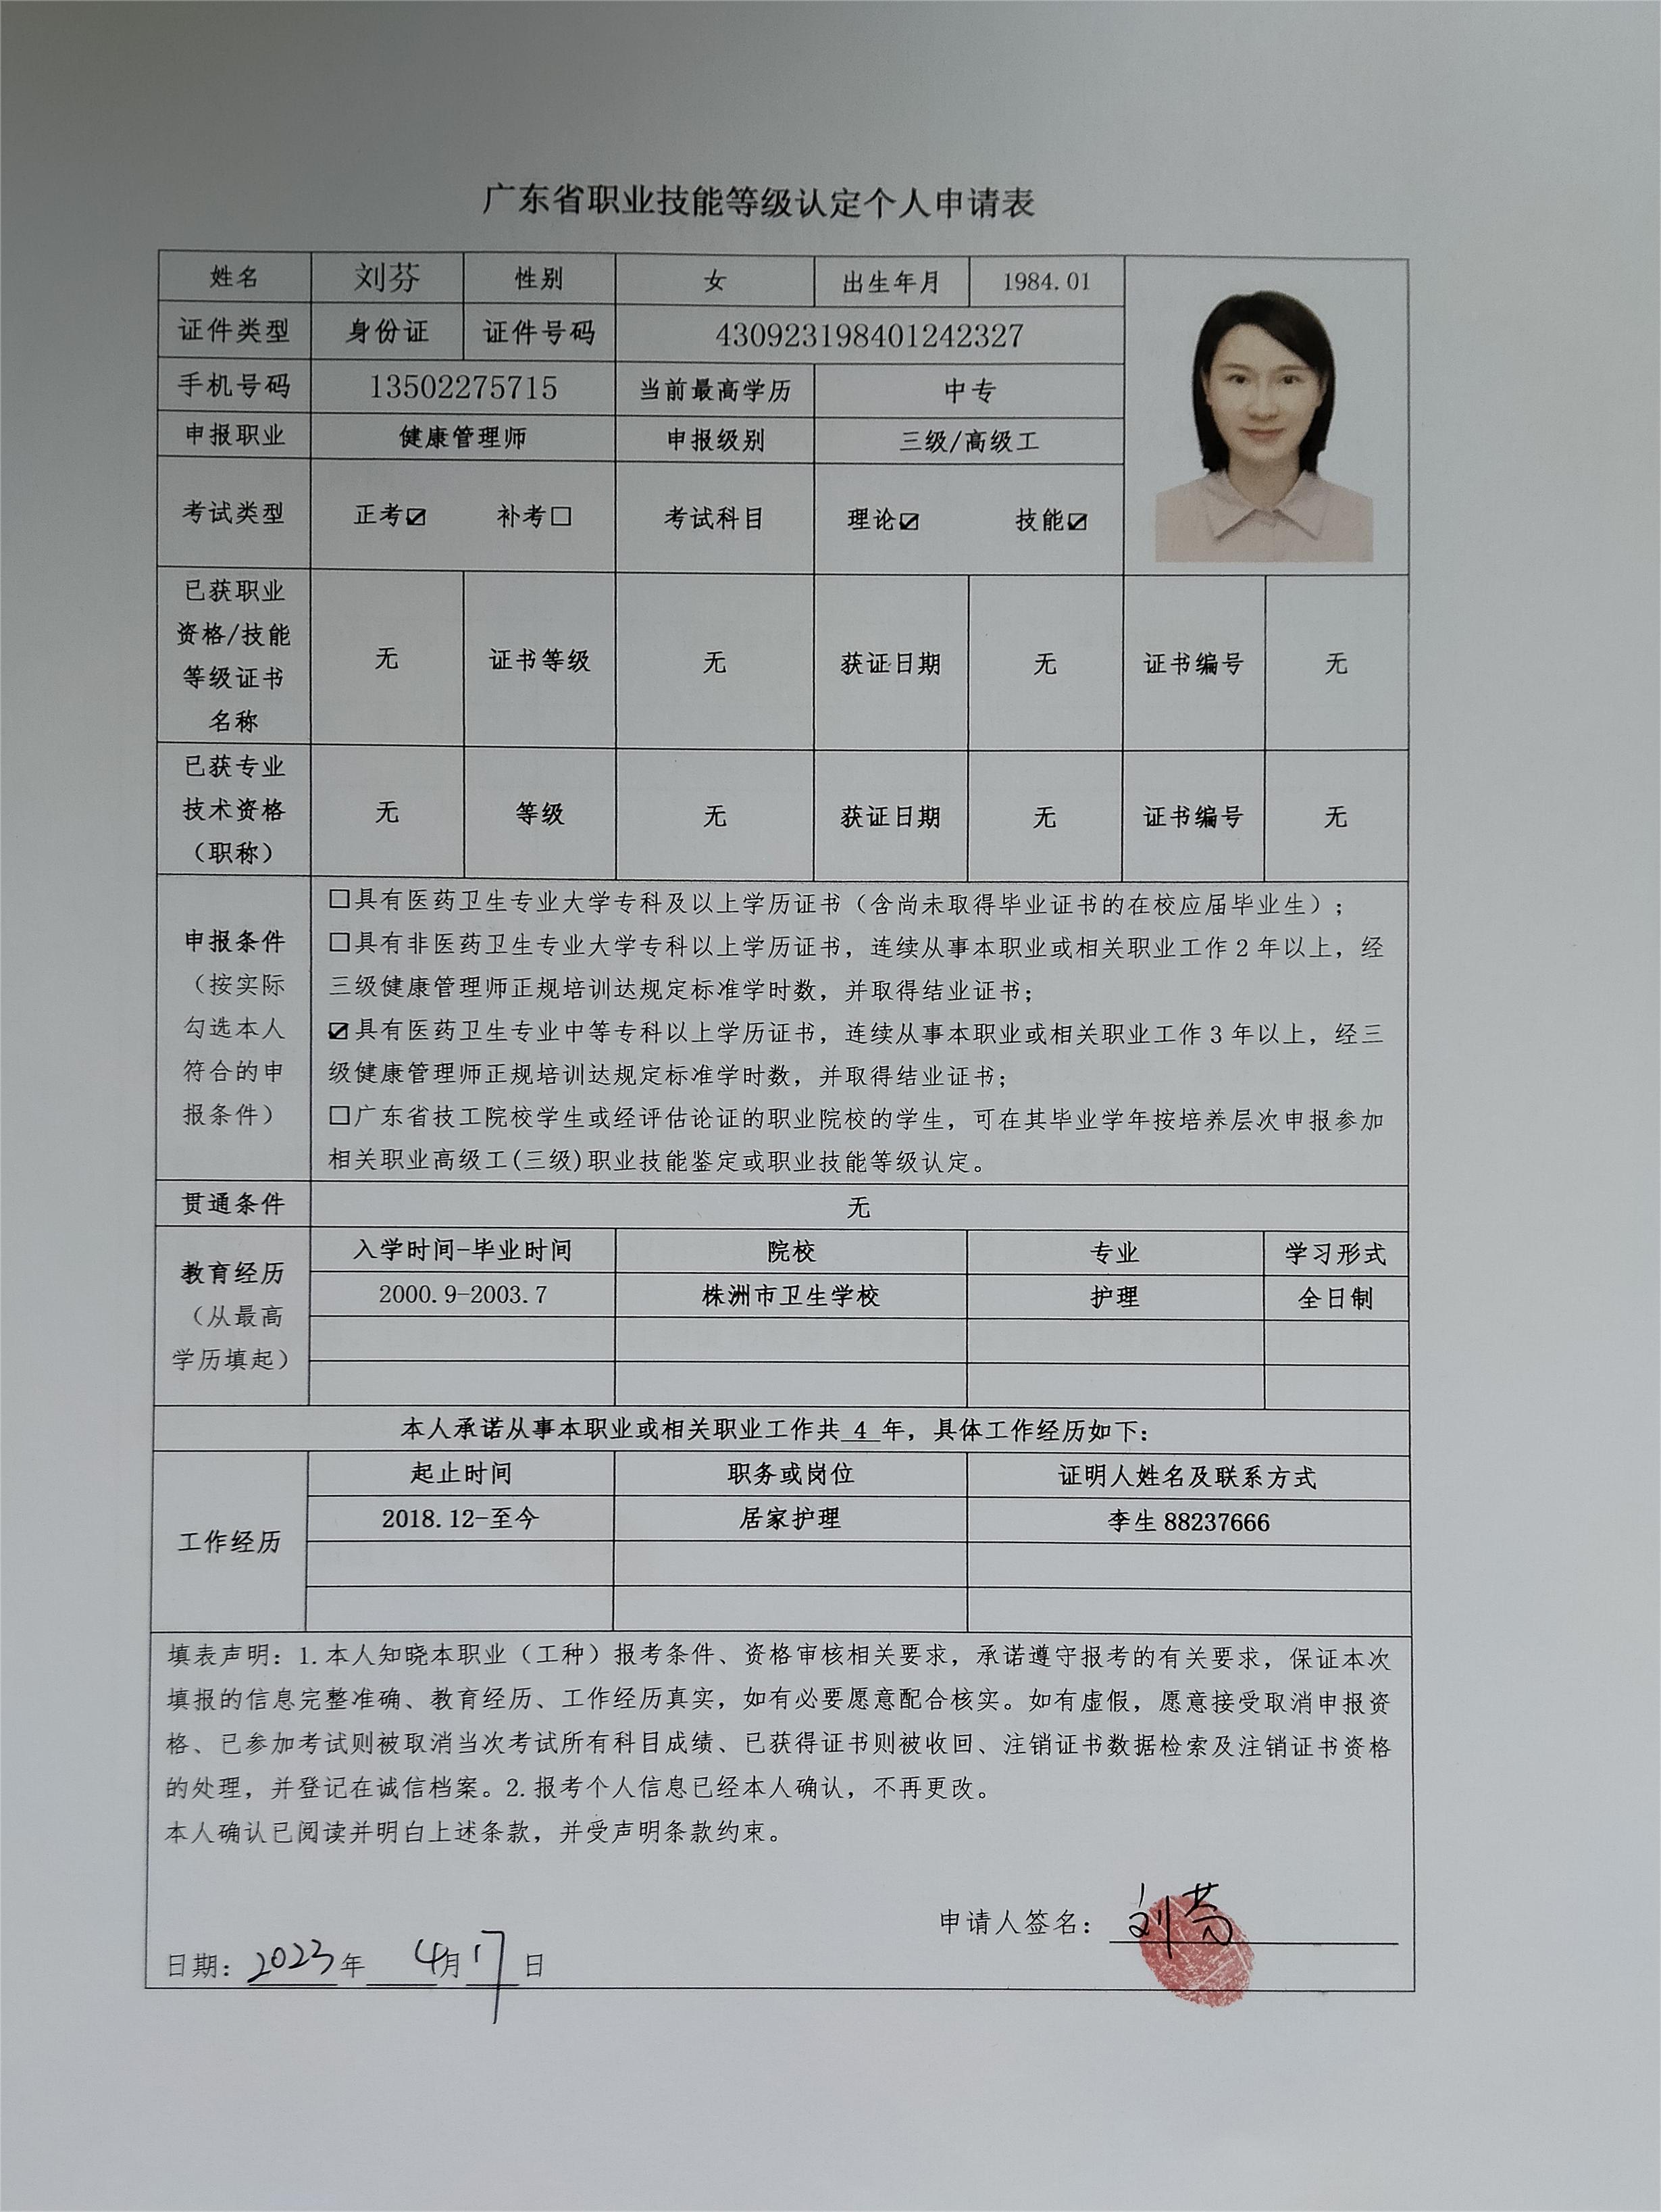 广东省职业技能等级认定个人申请表
姓名 刘芬 性别 女 出生年月 1984.01
证件类型 身份证 证件号码 430923198401242327
手机号码 13502275715 当前最高学历 中专
申报职业 健康管理师 申报级别 三级/高级工
考试类型 正考☑ 补考☐ 考试科目 理论☑ 技能☑
已获职业
资格/技能
等级证书
名称
无 证书等级 无 获证日期 无 证书编号 无
已获专业
技术资格
（职称）
无 等级 无 获证日期 无 证书编号 无
申报条件
（按实际
勾选本人
符合的申
报条件）
☐具有医药卫生专业大学专科及以上学历证书（含尚未取得毕业证书的在校应届毕业生）；
☐具有非医药卫生专业大学专科以上学历证书，连续从事本职业或相关职业工作2年以上，经
三级健康管理师正规培训达规定标准学时数，并取得结业证书；
☑具有医药卫生专业中等专科以上学历证书，连续从事本职业或相关职业工作3年以上，经三
级健康管理师正规培训达规定标准学时数，并取得结业证书；
☐广东省技工院校学生或经评估论证的职业院校的学生，可在其毕业学年按培养层次申报参加
相关职业高级工(三级)职业技能鉴定或职业技能等级认定。
贯通条件 无
教育经历
（从最高
学历填起）
入学时间-毕业时间 院校 专业 学习形式
2000.9-2003.7 株洲市卫生学校 护理 全日制
本人承诺从事本职业或相关职业工作共 4 年，具体工作经历如下：
工作经历
起止时间 职务或岗位 证明人姓名及联系方式
2018.12-至今 居家护理 李生 88237666
填表声明：1.本人知晓本职业（工种）报考条件、资格审核相关要求，承诺遵守报考的有关要求，保证本次
填报的信息完整准确、教育经历、工作经历真实，如有必要愿意配合核实。如有虚假，愿意接受取消申报资
格、已参加考试则被取消当次考试所有科目成绩、已获得证书则被收回、注销证书数据检索及注销证书资格
的处理，并登记在诚信档案。2.报考个人信息已经本人确认，不再更改。
本人确认已阅读并明白上述条款，并受声明条款约束。
申请人签名：刘芬
日期：2023年 4月17日